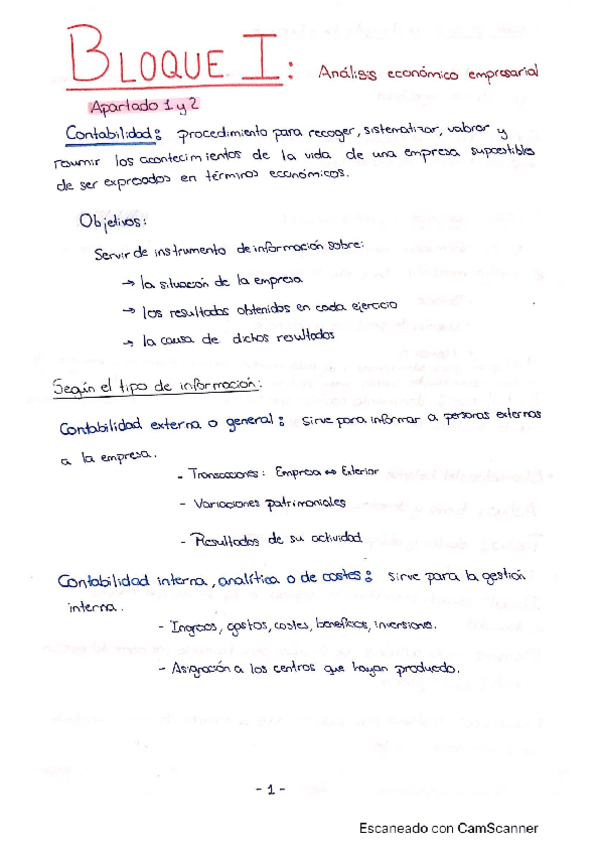 BLOQUE I: Análisis económico empresarial
Apartado 1 y 2
Contabilidad: procedimiento para recoger, sistematizar, valorar y
resumir los acontecimientos de la vida de una empresa supcestibles
de ser expresados en términos económicos.
Objetivos:
Servir de instrumento de información sobre:
→ la situación de la empresa
→ los resultados obtenidos en cada ejercicio
→ la causa de dichos resultados
Según el tipo de información:
Contabilidad externa o general: sirve para informar a personas externas
a la empresa.
- Transacciones: Empresa ↔ Exterior
- Variaciones patrimoniales
- Resultados de su actividad
Contabilidad interna, analítica o de costes: sirve para la gestión
interna.
- Ingresos, gastos, costes, beneficios, inversiones.
- Asignación a los centros que hayan producido.
- 1 -
Escaneado con CamScanner